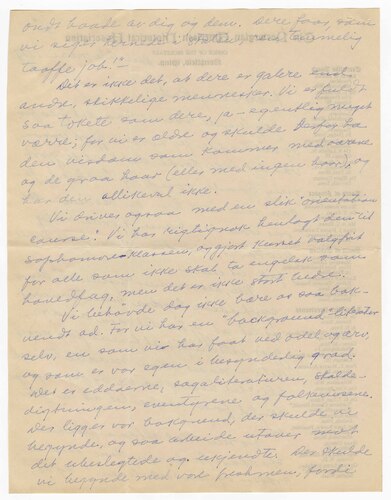 ondt baade av dig og dem. Dere faar, som
vi siger herned i
taaffe job!"
Det er ikke det, at dere er galere end
andre, skikkelige mennesker. Vi er fuldt
saa tokete som dere, ja - egentlig meget
værre; for vi er ældre og skulde derfor ha
den visdom som kommer med aarene
og de graa haar (eller med ingen haar), og
har den allikevel ikke.
Vi drives ogsaa med en slik "orientation
course". Vi har rigtignok henlagt den til
sophomore-klassen, og gjort kurset valgfrit
for alle som ikke skal ta engelsk som
hovedfag, men det er ikke stort bedre.
Vi behøvde dog ikke bære os saa bak-
vendt ad. For vi har en "background" literatur
selv, en som vi har faat ved odel og arv,
og som er vor egen i besynderlig grad.
Det er eddaerne, sagaliteraturen, skalde-
digtningen, eventyrene og folkevisene.
Der ligger vor bakgrund, der skulde vi
begynde, og saa arbeide utover mot
det ubenægtede og ukjendte. Der skulde
vi begynde med vore freshmen, fordi